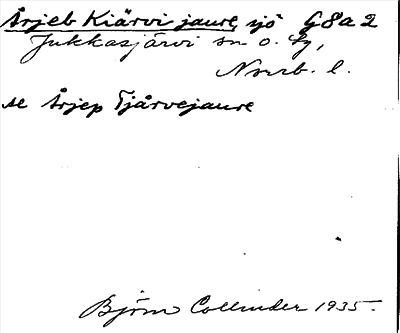 Årjeb Kiärvijaure, sjö G8a2
Jukkasjärvi sn o. tg,
Norrb. l.
se Årjep Tjårvejaure
Björn Collinder 1935.